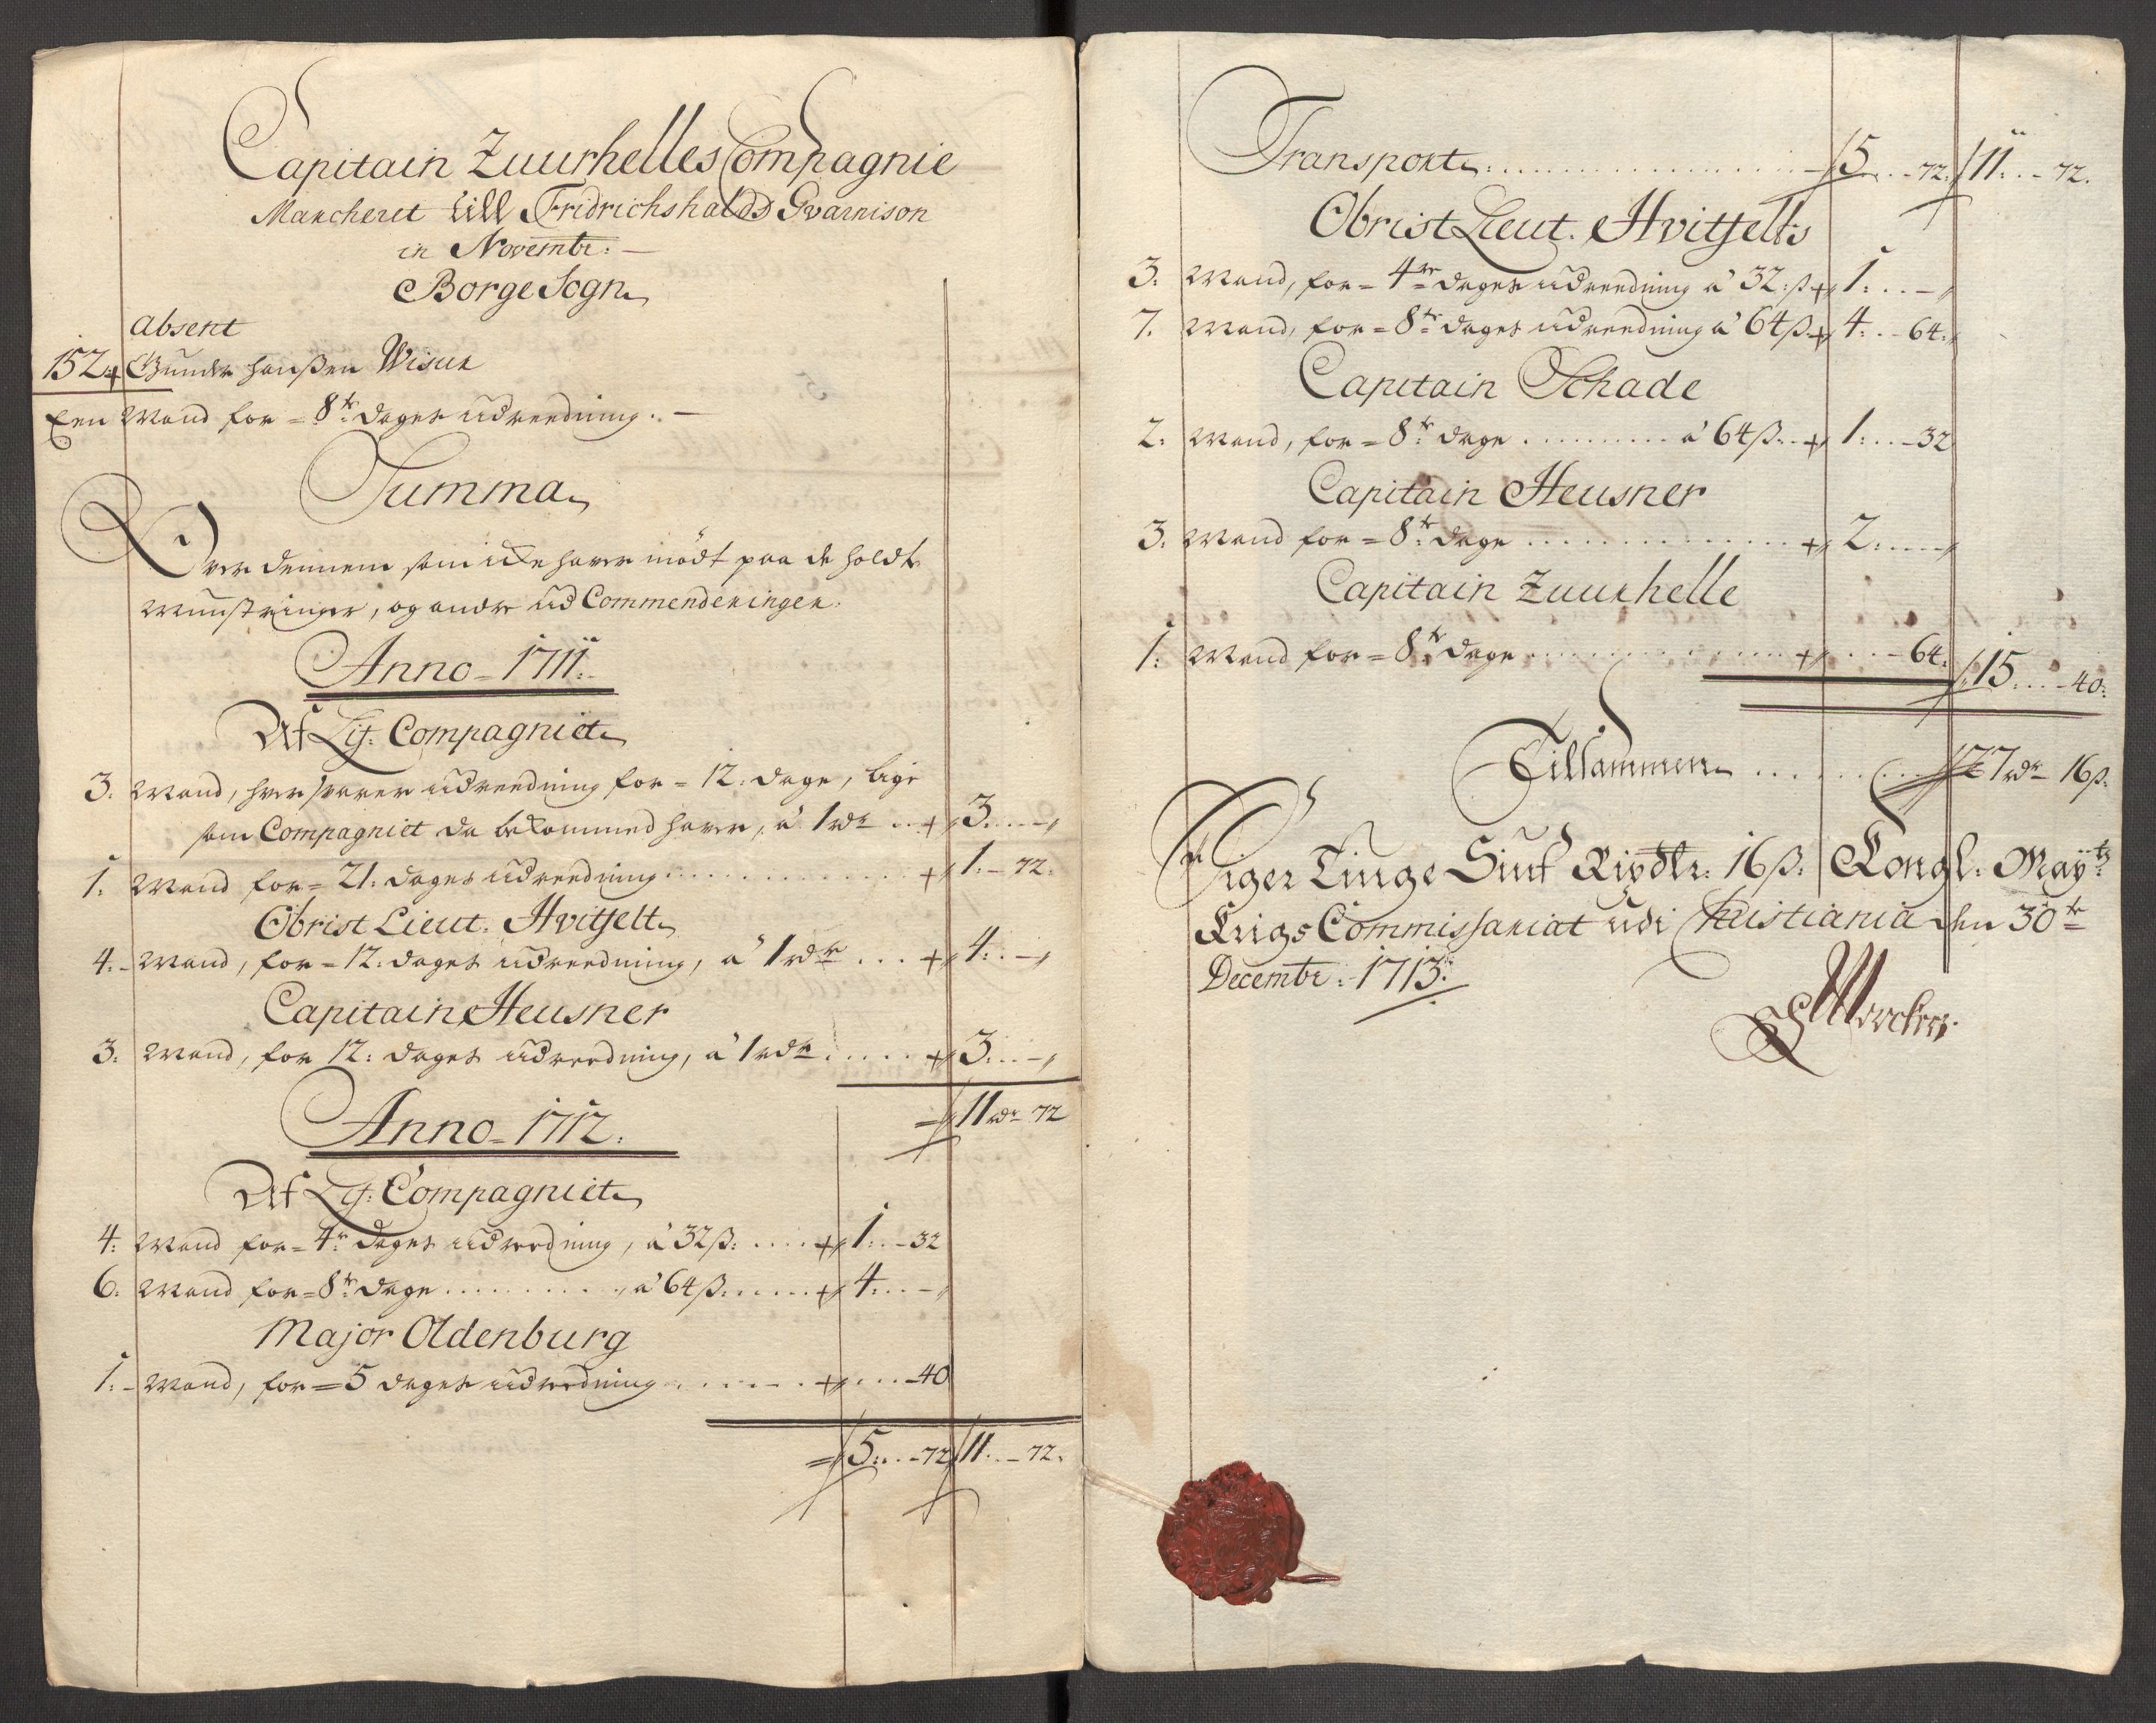 Capitain Zuurhelles Compagnie
Marcheret till Fridrichshalds Gvarnison
in Novembr:
Borge Sogn
Absent
152 + Gunder Hanßen Wisur
Een Mand for = 8te dages udreedning. —
Summa
Over dennem som icke haver mödt paa de holdte
Münstringer, og andre ud Commenderinger.
Anno 1711.
Af Lif: Compagniet
3. Mand, hver svarer udreedning for = 12. dage, lige
som Compagniet da bekommed haver, á 1 rdr .. + 3...-
1. Mand for = 21. dages udreedning ............ + 1.-72.
Obrist Lieut. Hvitfelt
4. Mand, for = 12. dages udreedning, á 1 rdr ... + 4..-
Capitain Heusner
3. Mand, for 12: dages udreedning, á 1 rdr ..... + 3...-
11 rdr 72
Anno 1712.
Af Lif: Compagniet
4. Mand for = 4re dages udreedning, á 32 ß: .... + 1..-32
6. Mand for = 8te dage ......... á 64 ß ...... + 4...-
Major Oldenburg
1. Mand, for = 5 dages udreedning ........ + ...-40
5...-72 11..-72.
Transport ................. 5..-72. 11..-72.
Obrist Lieut. Hvitfelts
3. Mand, for = 4re dages udreedning á 32: ß + 1...-
7. Mand, for = 8te dages udreedning á 64 ß + 4...64.
Capitain Schade
2. Mand, for = 8te dage .......... á 64 ß .. + 1...-32
Capitain Heusner
3. Mand for = 8te dage ................ + 2......
Capitain Zuurhelle
1. Mand for = 8te dage ............... + ...-64.
15...-40.
Tillammen ......... 27 rdr 16 ß.
Siger Tiuge Siuf Rixdlr. 16 ß. Kongl. Mayts
Krigs Commissariat udi Christiania den 30te
Decembr: 1713.